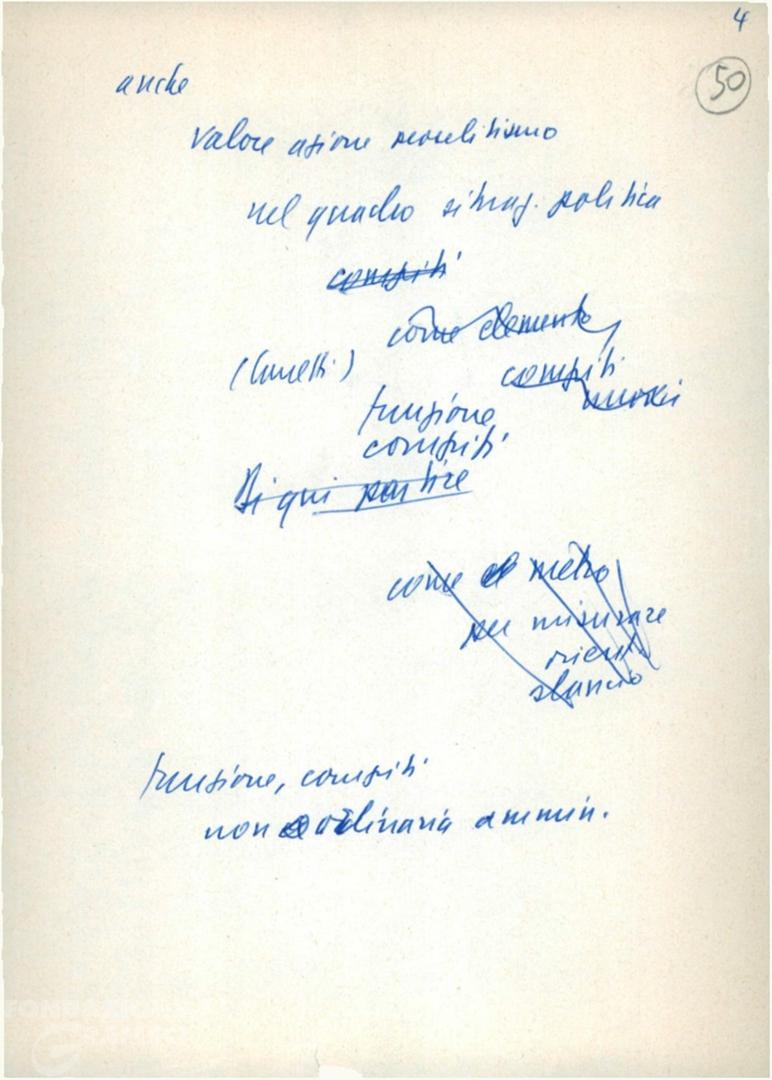 4
50
anche
valore azione
nel quadro situaz. politica
compiti
come elemento
compiti
nuovi
funzione
compiti
Di qui partire
come metro
per misurare
slancio
funzione, compiti
non ordinaria ammin.
FONDAZIONE